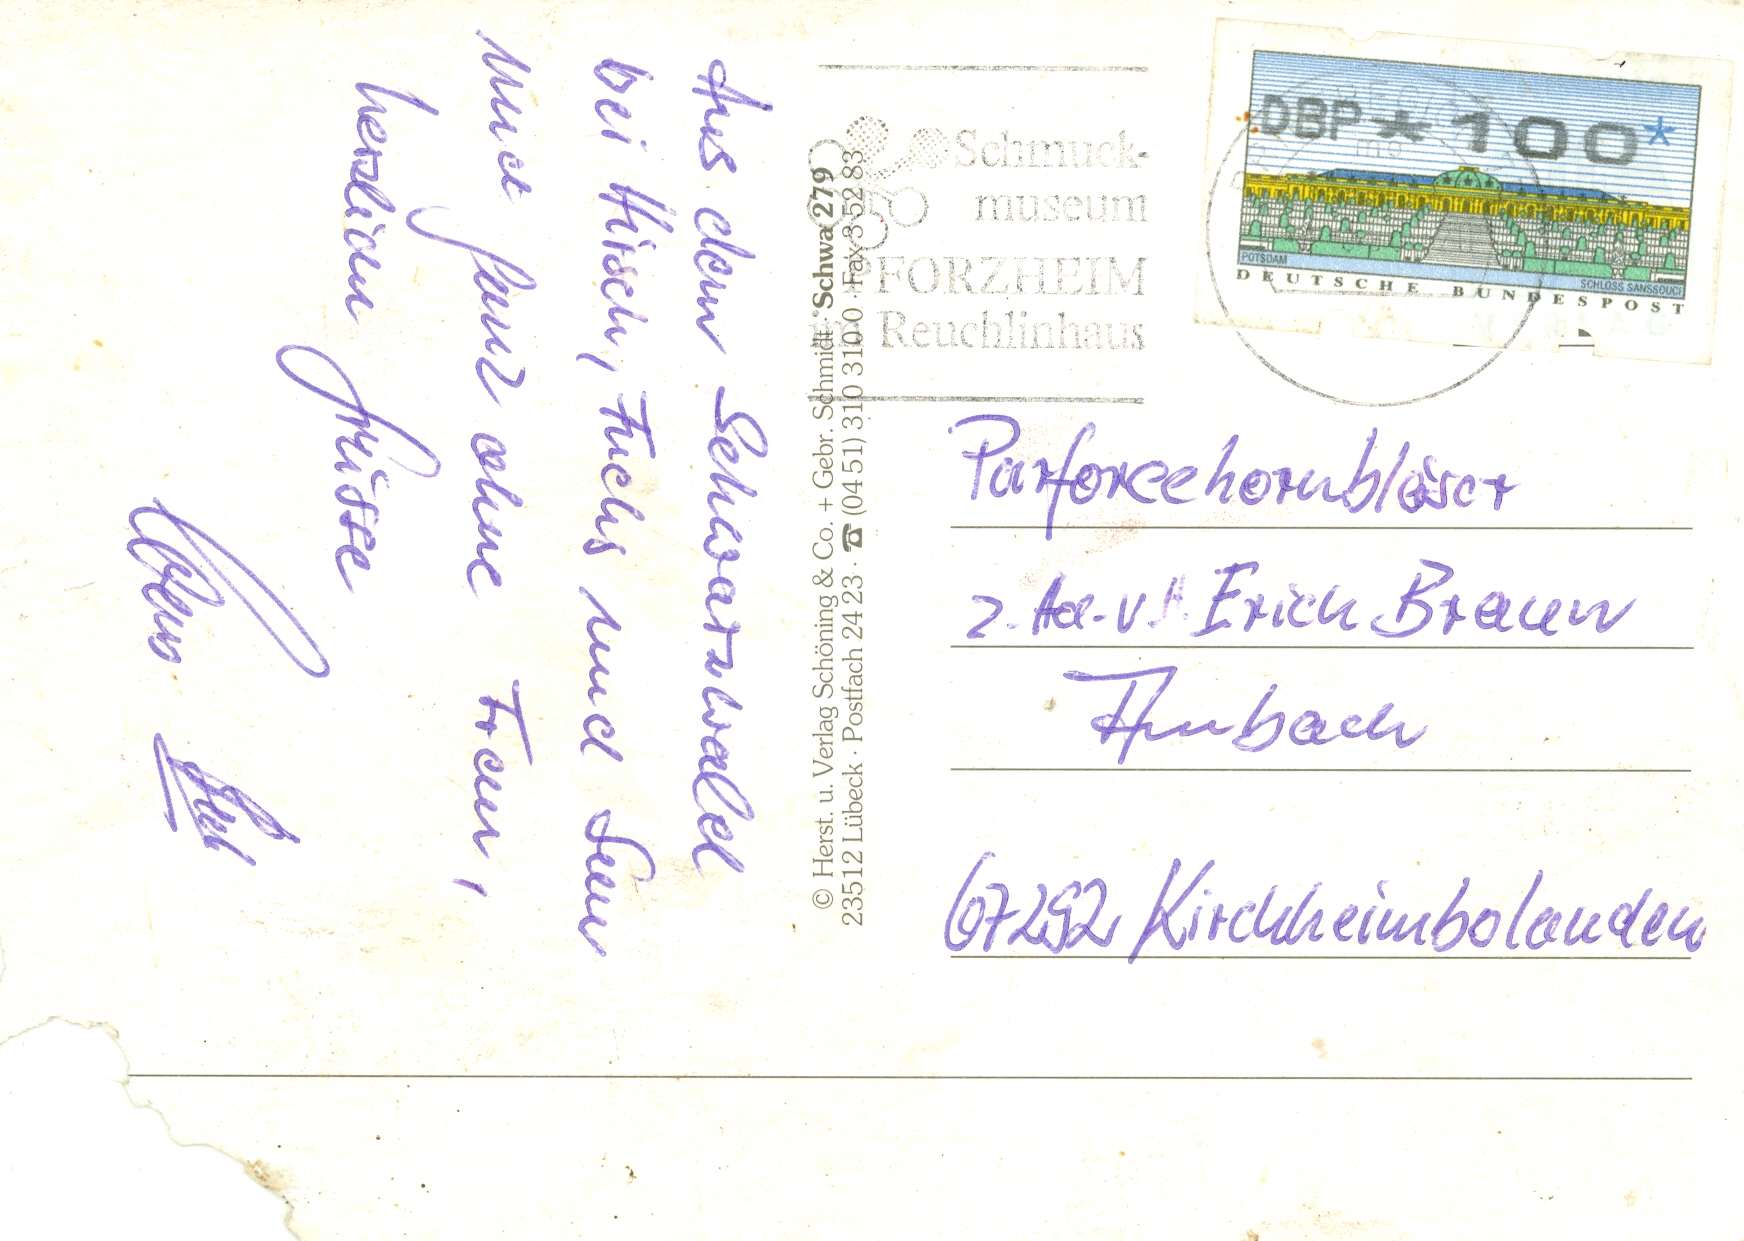 Aus dem Schwarzwald
bei Hirsch, Fuchs und Sau
und ganz ohne Frau,
herzliche Grüsse
Schmuck-
museum
PFORZHEIM
im Reuchlinhaus
DBP * 100 *
POTSDAM
SCHLOSS SANSSOUCI
DEUTSCHE BUNDESPOST
© Herst. u. Verlag Schöning & Co. + Gebr. Schmidt · Schwa 279
23512 Lübeck · Postfach 24 23 · ☎ (04 51) 310 3100 · Fax 3 52 83
Parforcehornbläser
Erich Braun
67292 Kirchheimbolanden